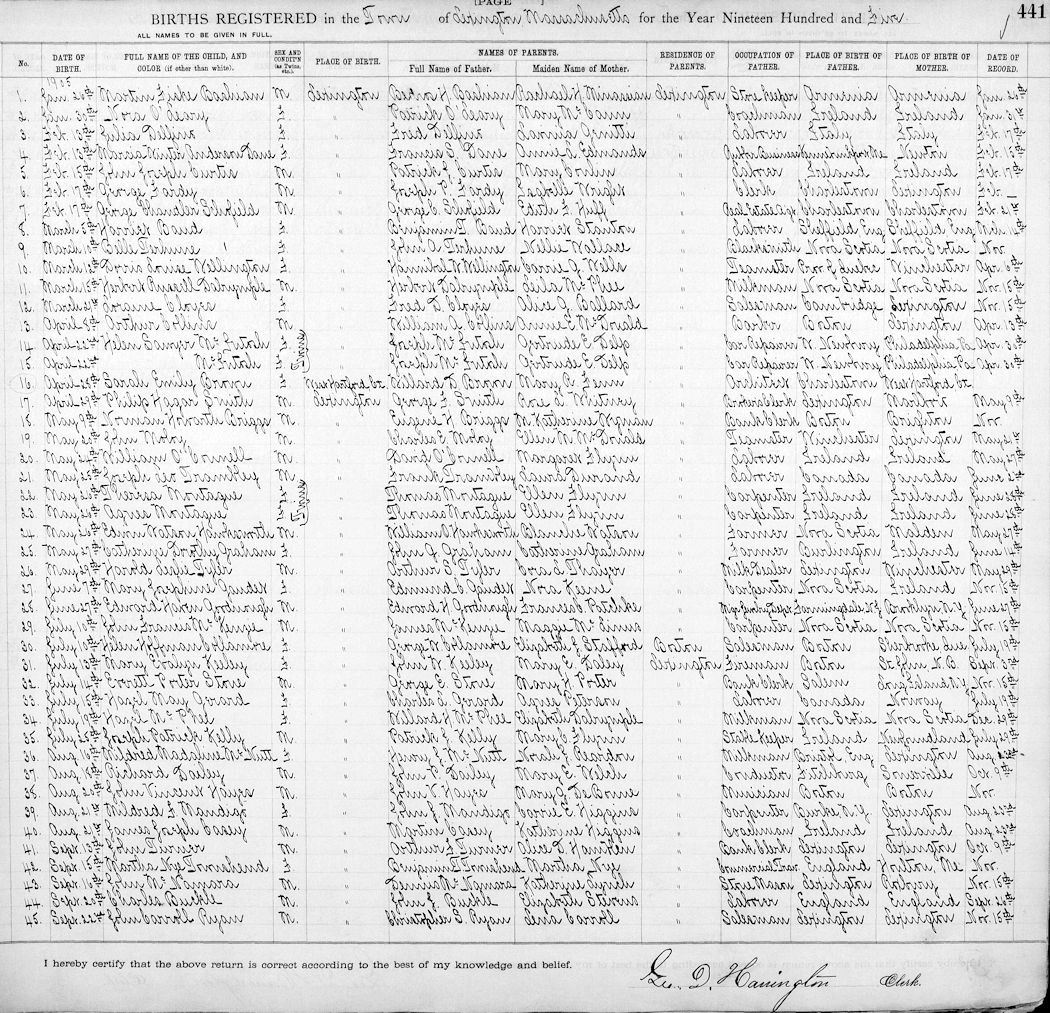 BIRTHS REGISTERED in the Town of Lexington Massachusetts for the Year Nineteen Hundred and Five. 441
ALL NAMES TO BE GIVEN IN FULL.
No. DATE OF BIRTH. FULL NAME OF THE CHILD, AND COLOR (if other than white). SEX AND CONDIT'N (as Twins, etc.) PLACE OF BIRTH. NAMES OF PARENTS. Full Name of Father. Maiden Name of Mother. RESIDENCE OF PARENTS. OCCUPATION OF FATHER. PLACE OF BIRTH OF FATHER. PLACE OF BIRTH OF MOTHER. DATE OF RECORD.
1905
1. Jan. 26th Martin M. Lexington Lexington Storekeeper Armenia Armenia Jan. 28th
2. Jan. 30th Nora P. Leary F. " Patrick J. Leary Mary McCann " Coachman Ireland Ireland Jan. 31st
3. Feb. 13th Julia F. " Fred " Laborer Italy Italy Feb. 17th
4. Feb. 13th Dane F. " Francis E. Dane Annie L. Edmands " Newton Feb. 15th
5. Feb. 15th John Joseph Curtis M. " Patrick J. Curtis Mary Conlin " Laborer Ireland Ireland Feb. 17th
6. Feb. 17th George Fardy M. " Joseph P. Fardy Isabelle Wright " Clerk Charlestown Lexington Feb.
7. Feb. 17th George Chandler M. " George C. Edith F. Huff " Real Estate Charlestown Charlestown Feb. 21st
8. March 5th Harriet Baud F. " Benjamin D. Baud Harriet Stanton " Laborer Sheffield Eng Sheffield Eng Mch 11th
9. March 10th M. " John A. Nellie Wallace " Blacksmith Nova Scotia Nova Scotia Nov.
10. March 12th Doris Louise Wellington F. " Hannibal W. Wellington Carrie J. Wells " Teamster Winchester Apr. 6th
11. March 13th Herbert Russell Dalrymple M. " Harvard Dalrymple Leila McPhee " Milkman Nova Scotia Nova Scotia Nov. 15th
12. March 29th F. " Fred Alice G. Ballard " Salesman Cambridge Lexington Nov. 15th
13. April 8th Arthur Collins M. " William A. Collins Annie E. McDonald " Barber Boston Lexington Apr. 13th
14. April 22nd Helen Sawyer McLitosh F. Twins " Joseph McLitosh Gertrude E. Delp " Car Repairer W. Newbury Philadelphia Pa Sept. 30th
15. April 22nd McLitosh " Joseph McLitosh Gertrude E. Delp " Car Repairer W. Newbury Philadelphia Pa Sept. 30th
16. April 28th Sarah Emily Brown F. New Hartford Ct. Willard D. Brown Mary B. Fenn " Architect Charlestown New Hartford Ct.
17. April 29th Philip Haggar Smith M. Lexington George L. Smith Rose E. Whitney " Lexington Marlboro May 9th
18. May 9th Norman Howorth Briggs M. " Eugene H. Briggs M. Katherine Wyman " Bank Clerk Boston Brighton Nov.
19. May 20th John McCoy M. " Charles E. McCoy Ellen M. McDonald " Teamster Winchester Lexington May
20. May 24th William O'Connell M. " David O'Connell Margaret Flynn " Laborer Ireland Ireland May 27th
21. May 25th Joseph Leo M. " Frank Laura Durrand " Laborer Canada Canada June 2nd
22. May 26th Theresa Montague F. Twins " Thomas Montague Ellen Flynn " Carpenter Ireland Ireland June 22nd
23. May 26th Agnes Montague F. " Thomas Montague Ellen Flynn " Carpenter Ireland Ireland June 22nd
24. May 26th Edwin Watson Hawkesworth M. " William C. Hawkesworth Blanche Watson " Farmer Nova Scotia Malden May 27th
25. May 27th Catherine Dorothy Graham F. " John J. Graham Catherine Graham " Farmer Burlington Ireland June 14th
26. May 29th Harold Leslie Tyler M. " Arthur E. Tyler Cora E. Thayer " Milk Dealer Lexington Winchester May 29th
27. June 7th Mary Josephine Gaudet F. " Edmund C. Gaudet Nora Keene " Carpenter Nova Scotia Ireland Nov. 15th
28. June 27th Edward Haven Goodnough M. " Edward H. Goodnough Frances " Brooklyn N.Y. June 27th
29. July 10th John Francis McKenzie M. " James McKenzie Maggie McGinnis " Carpenter Nova Scotia Nova Scotia Nov. 15th
30. July 10th Helen Hoffman F. " George W. Elizabeth J. Stafford Boston Salesman Boston July 19th
31. July 13th Mary Evelyn Kelley F. " John W. Kelley Mary E. Daley Lexington Fireman Boston St. John N.B. Sept. 5th
32. July 14th Everett Porter Stone M. " George E. Stone Mary H. Porter " Bank Clerk Salem Long Island N.Y. Nov. 15th
33. July 15th Hazel May Gerard F. " Charles L. Gerard Agnes Peterson " Laborer Canada Norway July 19th
34. July 19th Hazel McPhee F. " Willard H. McPhee Elizabeth Dalrymple " Milkman Nova Scotia Nova Scotia Dec. 29th
35. July 25th Joseph Patrick Kelly M. " Patrick J. Kelly Mary C. Flynn " Stable Keeper Ireland Newfoundland July 29th
36. Aug. 16th Mildred Madaline McNutt F. " Henry J. McNutt Norah J. Reardon " Milkman Eng Lexington Aug. 22nd
37. Aug. 18th Richard Dailey M. " John P. Dailey Mary E. Welch " Conductor Fitchburg Somerville Oct. 9th
38. Aug. 20th John Vincent Hayes M. " John V. Hayes Mary G. " Musician Boston Boston Nov.
39. Aug. 21st Mildred F. Mandigo F. " John J. Mandigo Carrie E. Higgins " Carpenter N.Y. Lexington Aug. 23rd
40. Aug. 21st James Joseph Casey M. " Martin Casey Katherine Higgins " Coachman Ireland Ireland Aug. 23rd
41. Sept. 13th John Turner M. " Arthur L. Turner Alice D. Hamblen " Bank Clerk Lexington Lexington Oct. 9th
42. Sept. 15th Martha Nye Townshend F. " Benjamin D. Townshend Martha Nye " England Houlton, Me Nov.
43. Sept. 16th John McNamara M. " Dennis McNamara Katherine Lynch " Stone Mason Lexington Roxbury Nov. 15th
44. Sept. 20th Charles Buckle M. " John J. Buckle Elizabeth Stevens " Laborer England England Sept. 26th
45. Sept. 22nd John Carroll Ryan M. " Christopher S. Ryan Lena Carroll " Salesman Lexington Lexington Nov. 15th
I hereby certify that the above return is correct according to the best of my knowledge and belief.
Geo. D. Harrington Clerk.